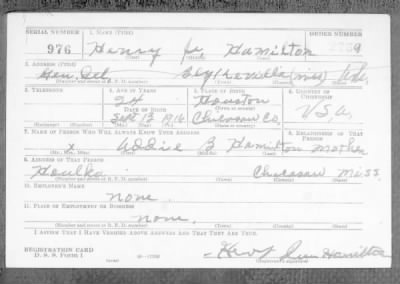 SERIAL NUMBER 1. NAME (Print) ORDER NUMBER
976 Henry Jr Hamilton
(First) (Middle) (Last)
2. ADDRESS (Print)
Gen. Del. Blytheville (Miss) Ark.
(Number and street or R. F. D. number) (Town) (County) (State)
3. TELEPHONE 4. AGE IN YEARS 5. PLACE OF BIRTH 6. COUNTRY OF CITIZENSHIP
24 Houston
DATE OF BIRTH
Sept 13 1916 Chicasaw Co. U.S.A.
(Mo.) (Day) (Yr.)
7. NAME OF PERSON WHO WILL ALWAYS KNOW YOUR ADDRESS 8. RELATIONSHIP OF THAT PERSON
x Addie B Hamilton Mother
(Mr., Mrs., Miss) (First) (Middle) (Last)
9. ADDRESS OF THAT PERSON
Houlka Chicasaw Miss.
(Number and street or R. F. D. number) (Town) (County) (State)
10. EMPLOYER'S NAME
none.
11. PLACE OF EMPLOYMENT OR BUSINESS
none.
(Number and street or R. F. D. number) (Town) (County) (State)
I AFFIRM THAT I HAVE VERIFIED ABOVE ANSWERS AND THAT THEY ARE TRUE.
REGISTRATION CARD
D. S. S. Form 1
Hamilton
(Registrant's signature)